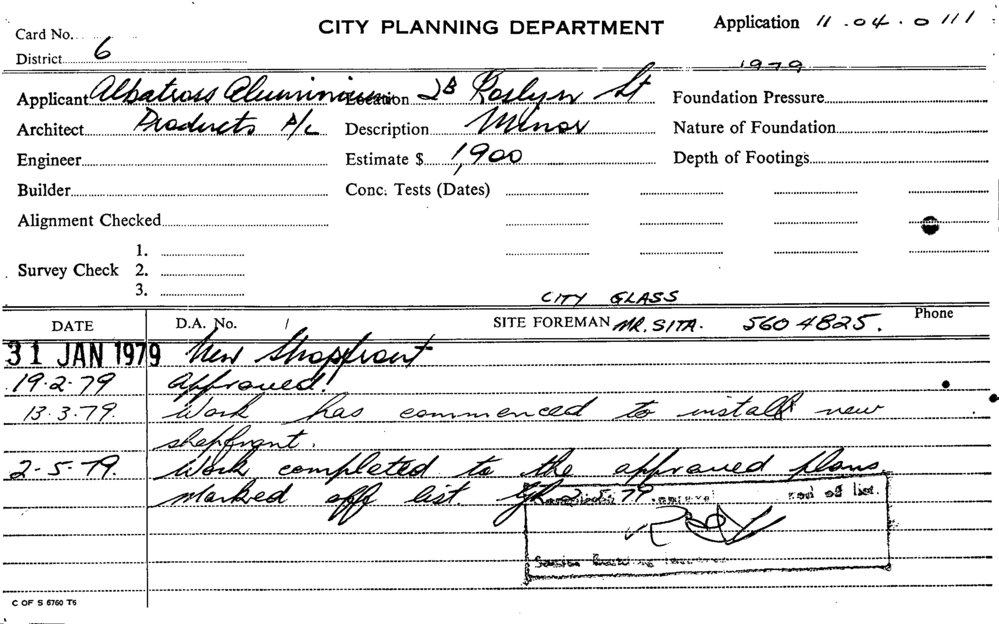 CITY PLANNING DEPARTMENT
Application 11.04.0111
Card No.
District 6
1979
Applicant Albatross Aluminium Location 2B Roslyn St Foundation Pressure
Architect Products P/L Description Minor Nature of Foundation
Engineer Estimate $ 1,900 Depth of Footings
Builder Conc. Tests (Dates)
Alignment Checked
1.
Survey Check 2.
3.
CITY GLASS
DATE D.A. No. / SITE FOREMAN MR. SITA. 560 4825. Phone
31 JAN 1979 New Shopfront
19.2.79 Approved!
13.3.79. Work has commenced to install new
shopfront.
2-5-79. Work completed to the approved plans.
Marked off list. 2.5.79
off list.
C OF S 6760 T6